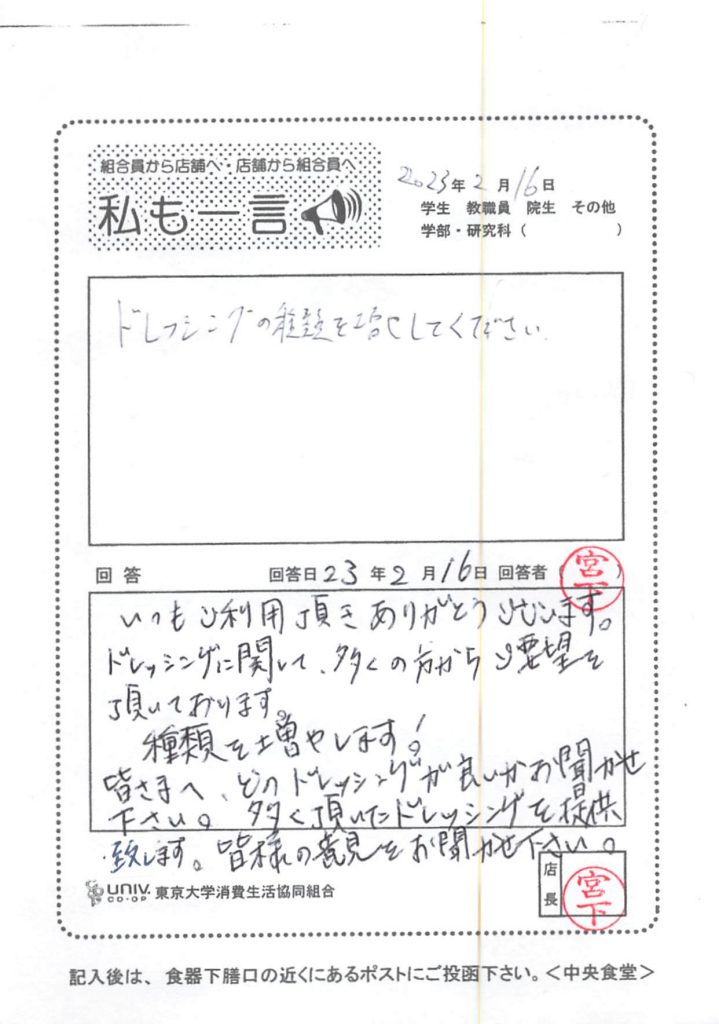 組合員から店舗へ・店舗から組合員へ
私も一言
2023年2月16日
学生 教職員 院生 その他
学部・研究科（ ）
ドレッシングの種類を増やしてください。
回答 回答日23年2月16日 回答者（宮下）
いつもご利用頂きありがとうございます。
ドレッシングに関して、多くの方からご要望を
頂いております。
種類を増やします！
皆さまへ、どのドレッシングが良いかお聞かせ
下さい。多く頂いたドレッシングを提供
致します。皆様の意見をお聞かせ下さい。
店長 宮下
UNIV. CO-OP 東京大学消費生活協同組合
記入後は、食器下膳口の近くにあるポストにご投函下さい。＜中央食堂＞